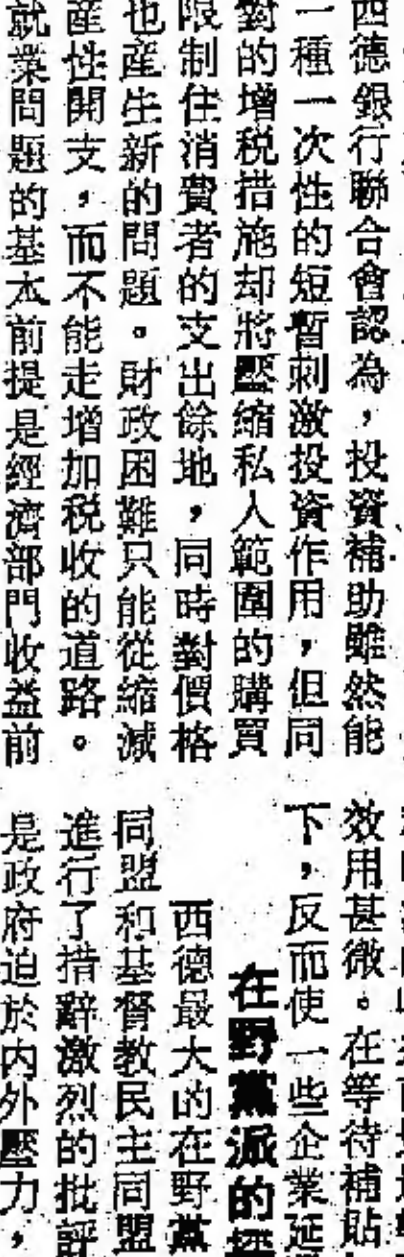 西德銀行聯合會認為，投資補助雖然能
一種一次性的短暫刺激投資作用，但同
對的增税措施却將壓縮私人範圍的購買
限制住消費者的支出餘地，同時對價格
也産生新的問題。財政困難只能從縮減
産性開支，而不能走增加税收的道路。
就業問題的基本前提是經濟部門收益前
效用甚微。在等待補貼
下，反而使一些企業延
在野黨派的
西德最大的在野黨
同盟和基督教民主同盟
進行了措辭激烈的批評
是政府迫於内外壓力，